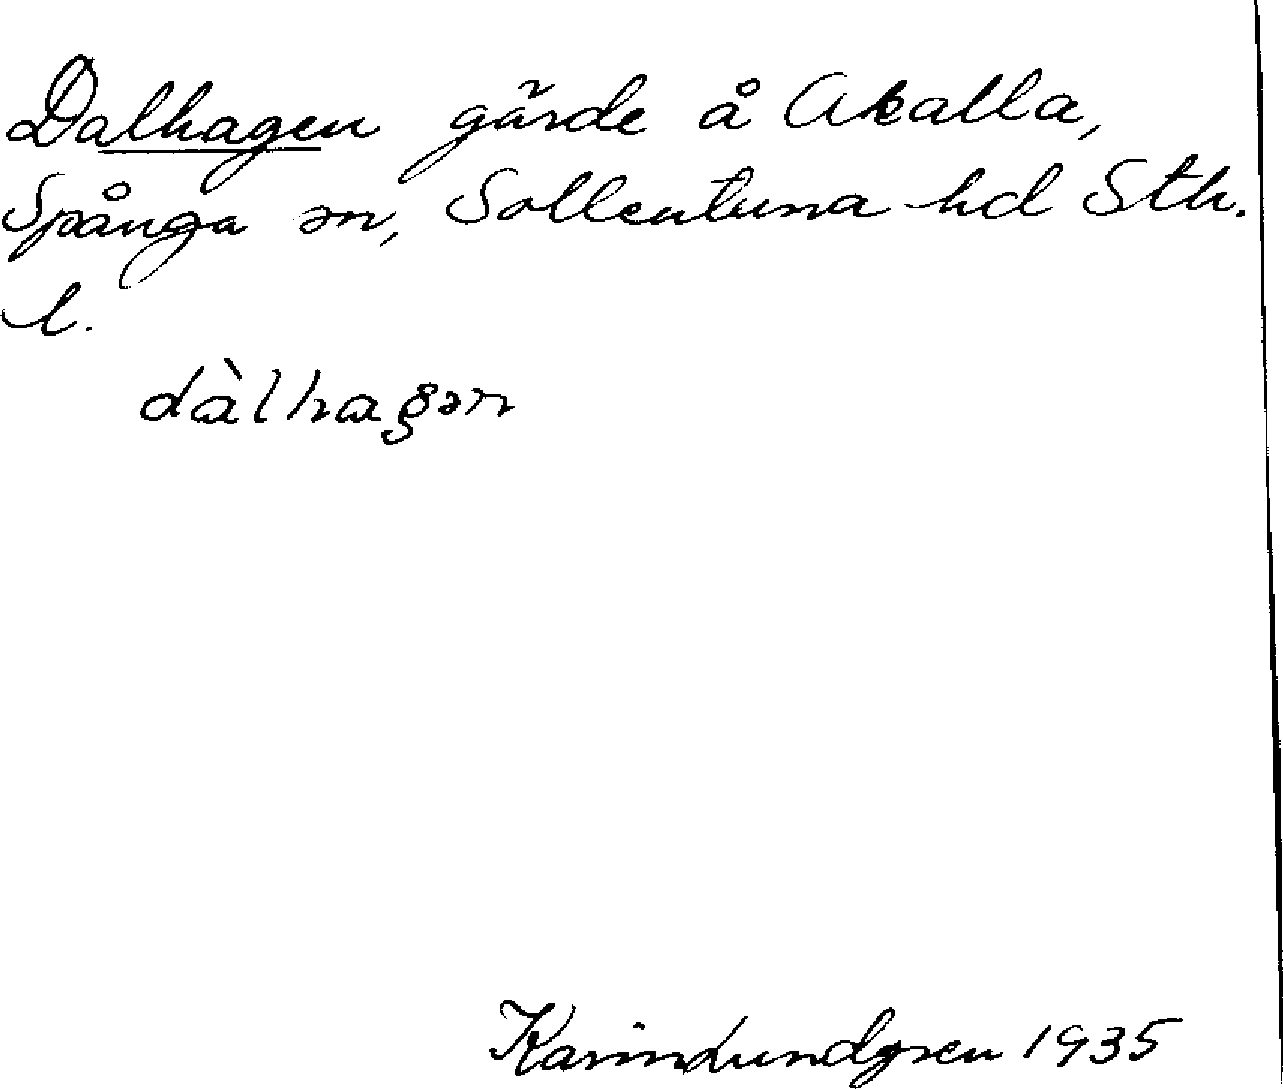 Dalhagen gärde å Akalla,
Spånga sn, Sollentuna hd Sth.
l.
dàlhagən
Karin Lundgren 1935